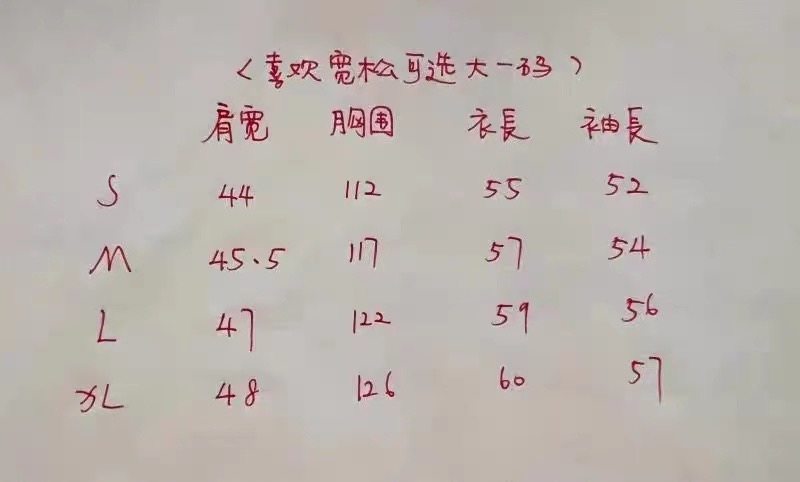 （喜欢宽松可选大一码）
肩宽 胸围 衣長 袖長
S 44 112 55 52
M 45.5 117 57 54
L 47 122 59 56
XL 48 126 60 57